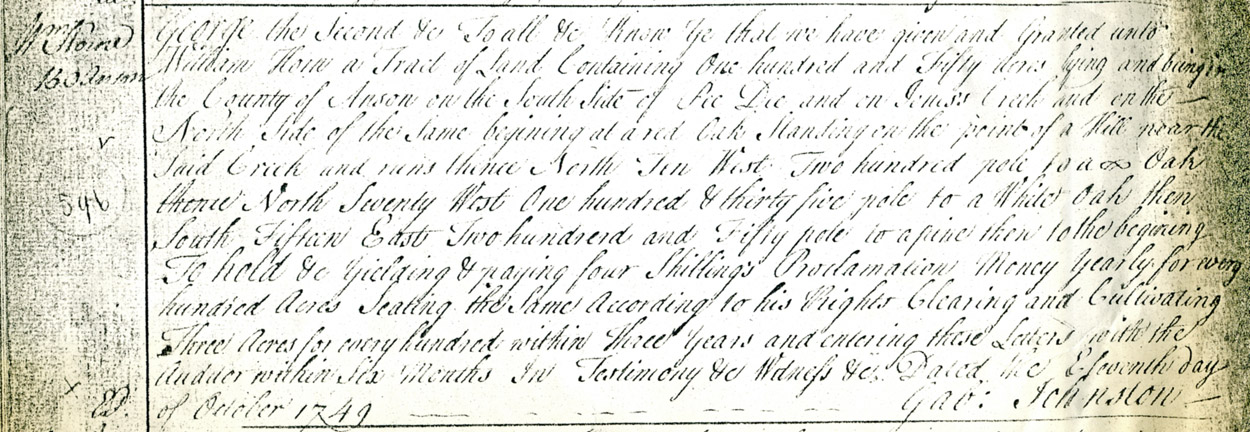 Wm
Horne
150 Anson
546
Ex.
George the Second &c To all &c Know Ye that we have given and Granted unto
William Horn a Tract of Land Containing One hundred and Fifty acres lying and being in
the County of Anson on the South Side of Pee Dee and on Jones's Creek and on the
North Side of the Same begining at a red Oak Standing on the point of a Hill near the
Said Creek and runs thence North Ten West Two hundred pole to a Oak
thence North Seventy West One hundred & thirty five pole to a White Oak then
South Fifteen East Two hundrerd and Fifty pole to a pine then to the begining
To hold &c Yielding & paying four Shillings Proclamation Money Yearly for every
hundred Acres Seating the Same According to his Rights Clearing and Cultivating
Three Acres for every hundred within three Years and entering these Letters with the
Auditor within Six Months In Testimony &c Witness &c Dated the Eleventh day
of October 1749 Gab: Johnston